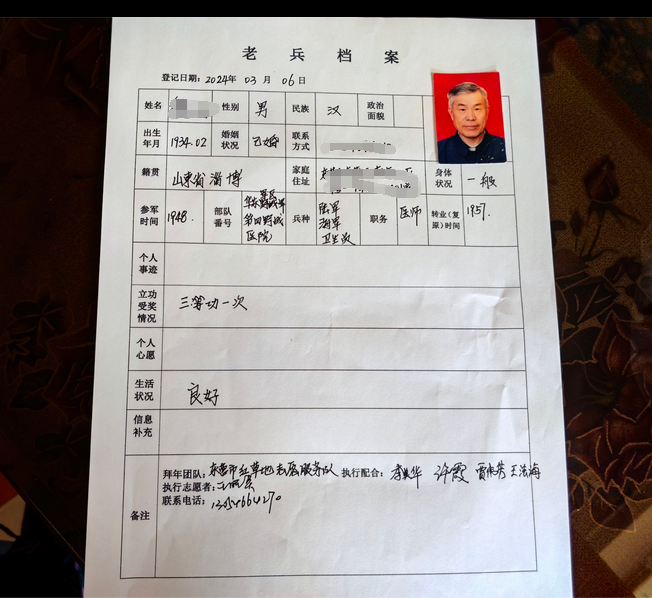 老兵档案
登记日期：2024年 03月 06日
姓名 性别 男 民族 汉 政治面貌
出生年月 1934.02 婚姻状况 已婚 联系方式
籍贯 山东省淄博 家庭住址 身体状况 一般
参军时间 1948. 部队番号 第四野战医院 兵种 陆军 海军 卫生员 职务 医师 转业（复原）时间 1957.
个人事迹
立功受奖情况 三等功一次
个人心愿
生活状况 良好
信息补充
备注
拜年团队：东营市红草地志愿服务队 执行配合： 许霞
执行志愿者：
联系电话：